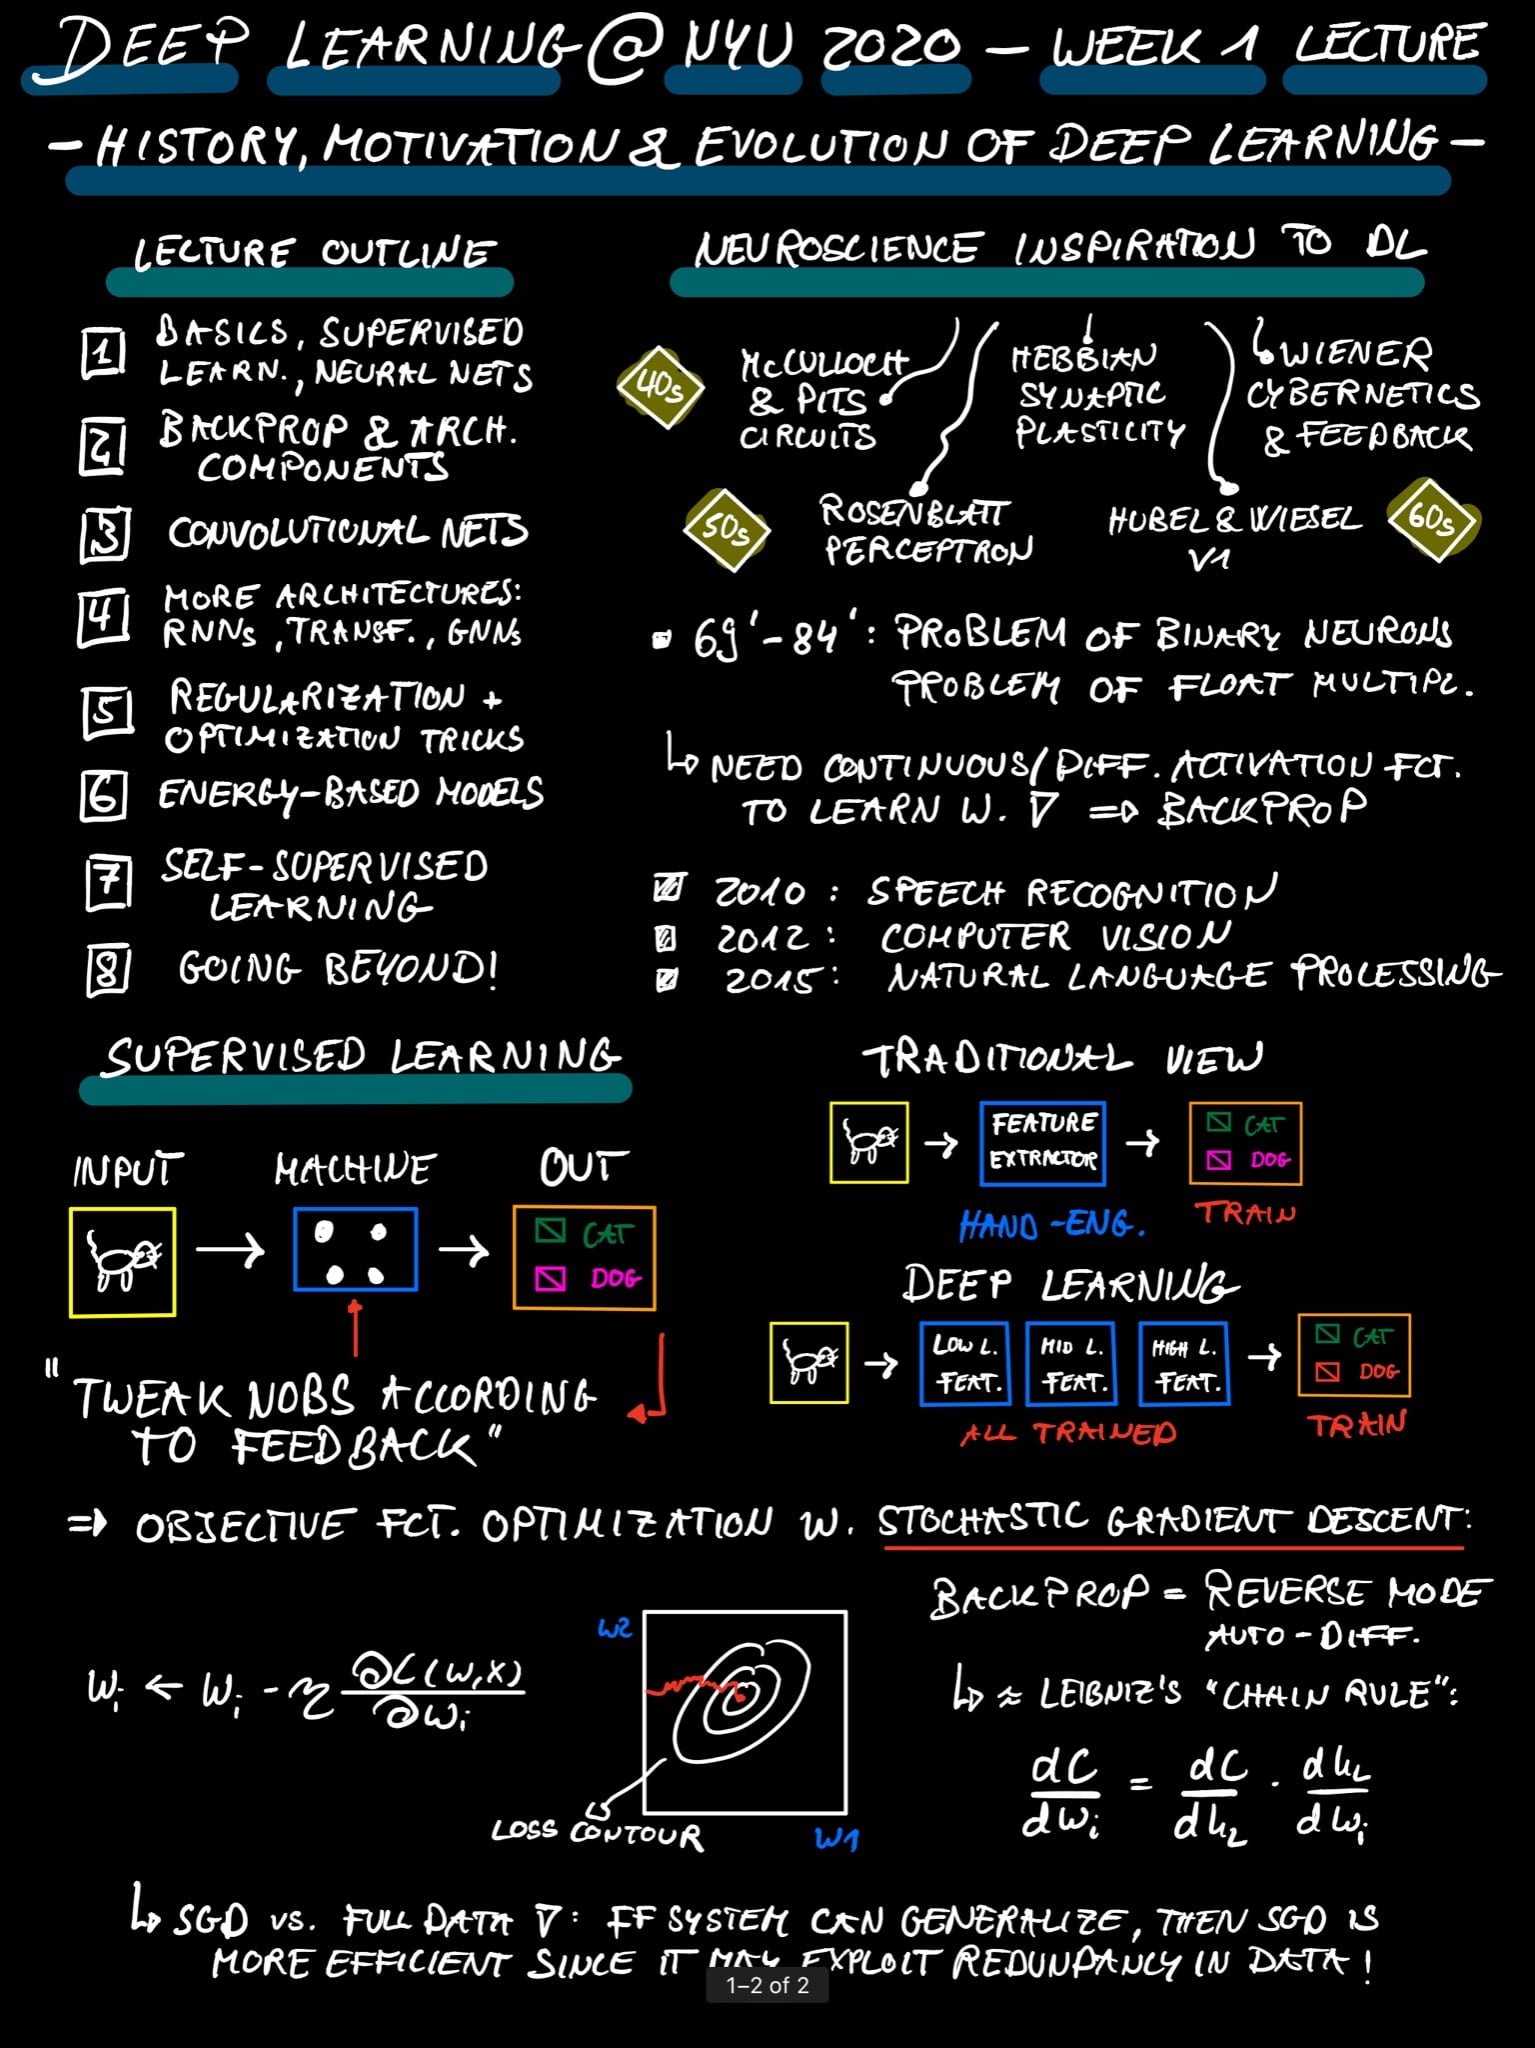 DEEP LEARNING @ NYU 2020 – WEEK 1 LECTURE
– HISTORY, MOTIVATION & EVOLUTION OF DEEP LEARNING –
LECTURE OUTLINE
1 BASICS, SUPERVISED
LEARN., NEURAL NETS
2 BACKPROP & ARCH.
COMPONENTS
3 CONVOLUTIONAL NETS
4 MORE ARCHITECTURES:
RNNs, TRANSF., GNNs
5 REGULARIZATION +
OPTIMIZATION TRICKS
6 ENERGY-BASED MODELS
7 SELF-SUPERVISED
LEARNING
8 GOING BEYOND!
NEUROSCIENCE INSPIRATION TO DL
40s
McCULLOCH
& PITS
CIRCUITS
HEBBIAN
SYNAPTIC
PLASTICITY
WIENER
CYBERNETICS
& FEEDBACK
50s
ROSENBLATT
PERCEPTRON
HUBEL & WIESEL
V1
60s
69'-84': PROBLEM OF BINARY NEURONS
PROBLEM OF FLOAT MULTIPL.
↳ NEED CONTINUOUS/DIFF. ACTIVATION FCT.
TO LEARN W. ∇ => BACKPROP
2010: SPEECH RECOGNITION
2012: COMPUTER VISION
2015: NATURAL LANGUAGE PROCESSING
SUPERVISED LEARNING
INPUT → MACHINE → OUT
CAT
DOG
"TWEAK NOBS ACCORDING
TO FEEDBACK"
TRADITIONAL VIEW
FEATURE
EXTRACTOR
CAT
DOG
HAND-ENG.
TRAIN
DEEP LEARNING
LOW L.
FEAT.
MID L.
FEAT.
HIGH L.
FEAT.
CAT
DOG
ALL TRAINED
TRAIN
=> OBJECTIVE FCT. OPTIMIZATION W. STOCHASTIC GRADIENT DESCENT:
wi ← wi - η ∂C(w,x)/∂wi
W2
W1
LOSS CONTOUR
BACKPROP = REVERSE MODE
AUTO-DIFF.
↳ ≈ LEIBNIZ'S "CHAIN RULE":
dC/dwi = dC/dhL · dhL/dwi
↳ SGD vs. FULL DATA ∇: IF SYSTEM CAN GENERALIZE, THEN SGD IS
MORE EFFICIENT SINCE IT MAY EXPLOIT REDUNDANCY IN DATA!
1–2 of 2